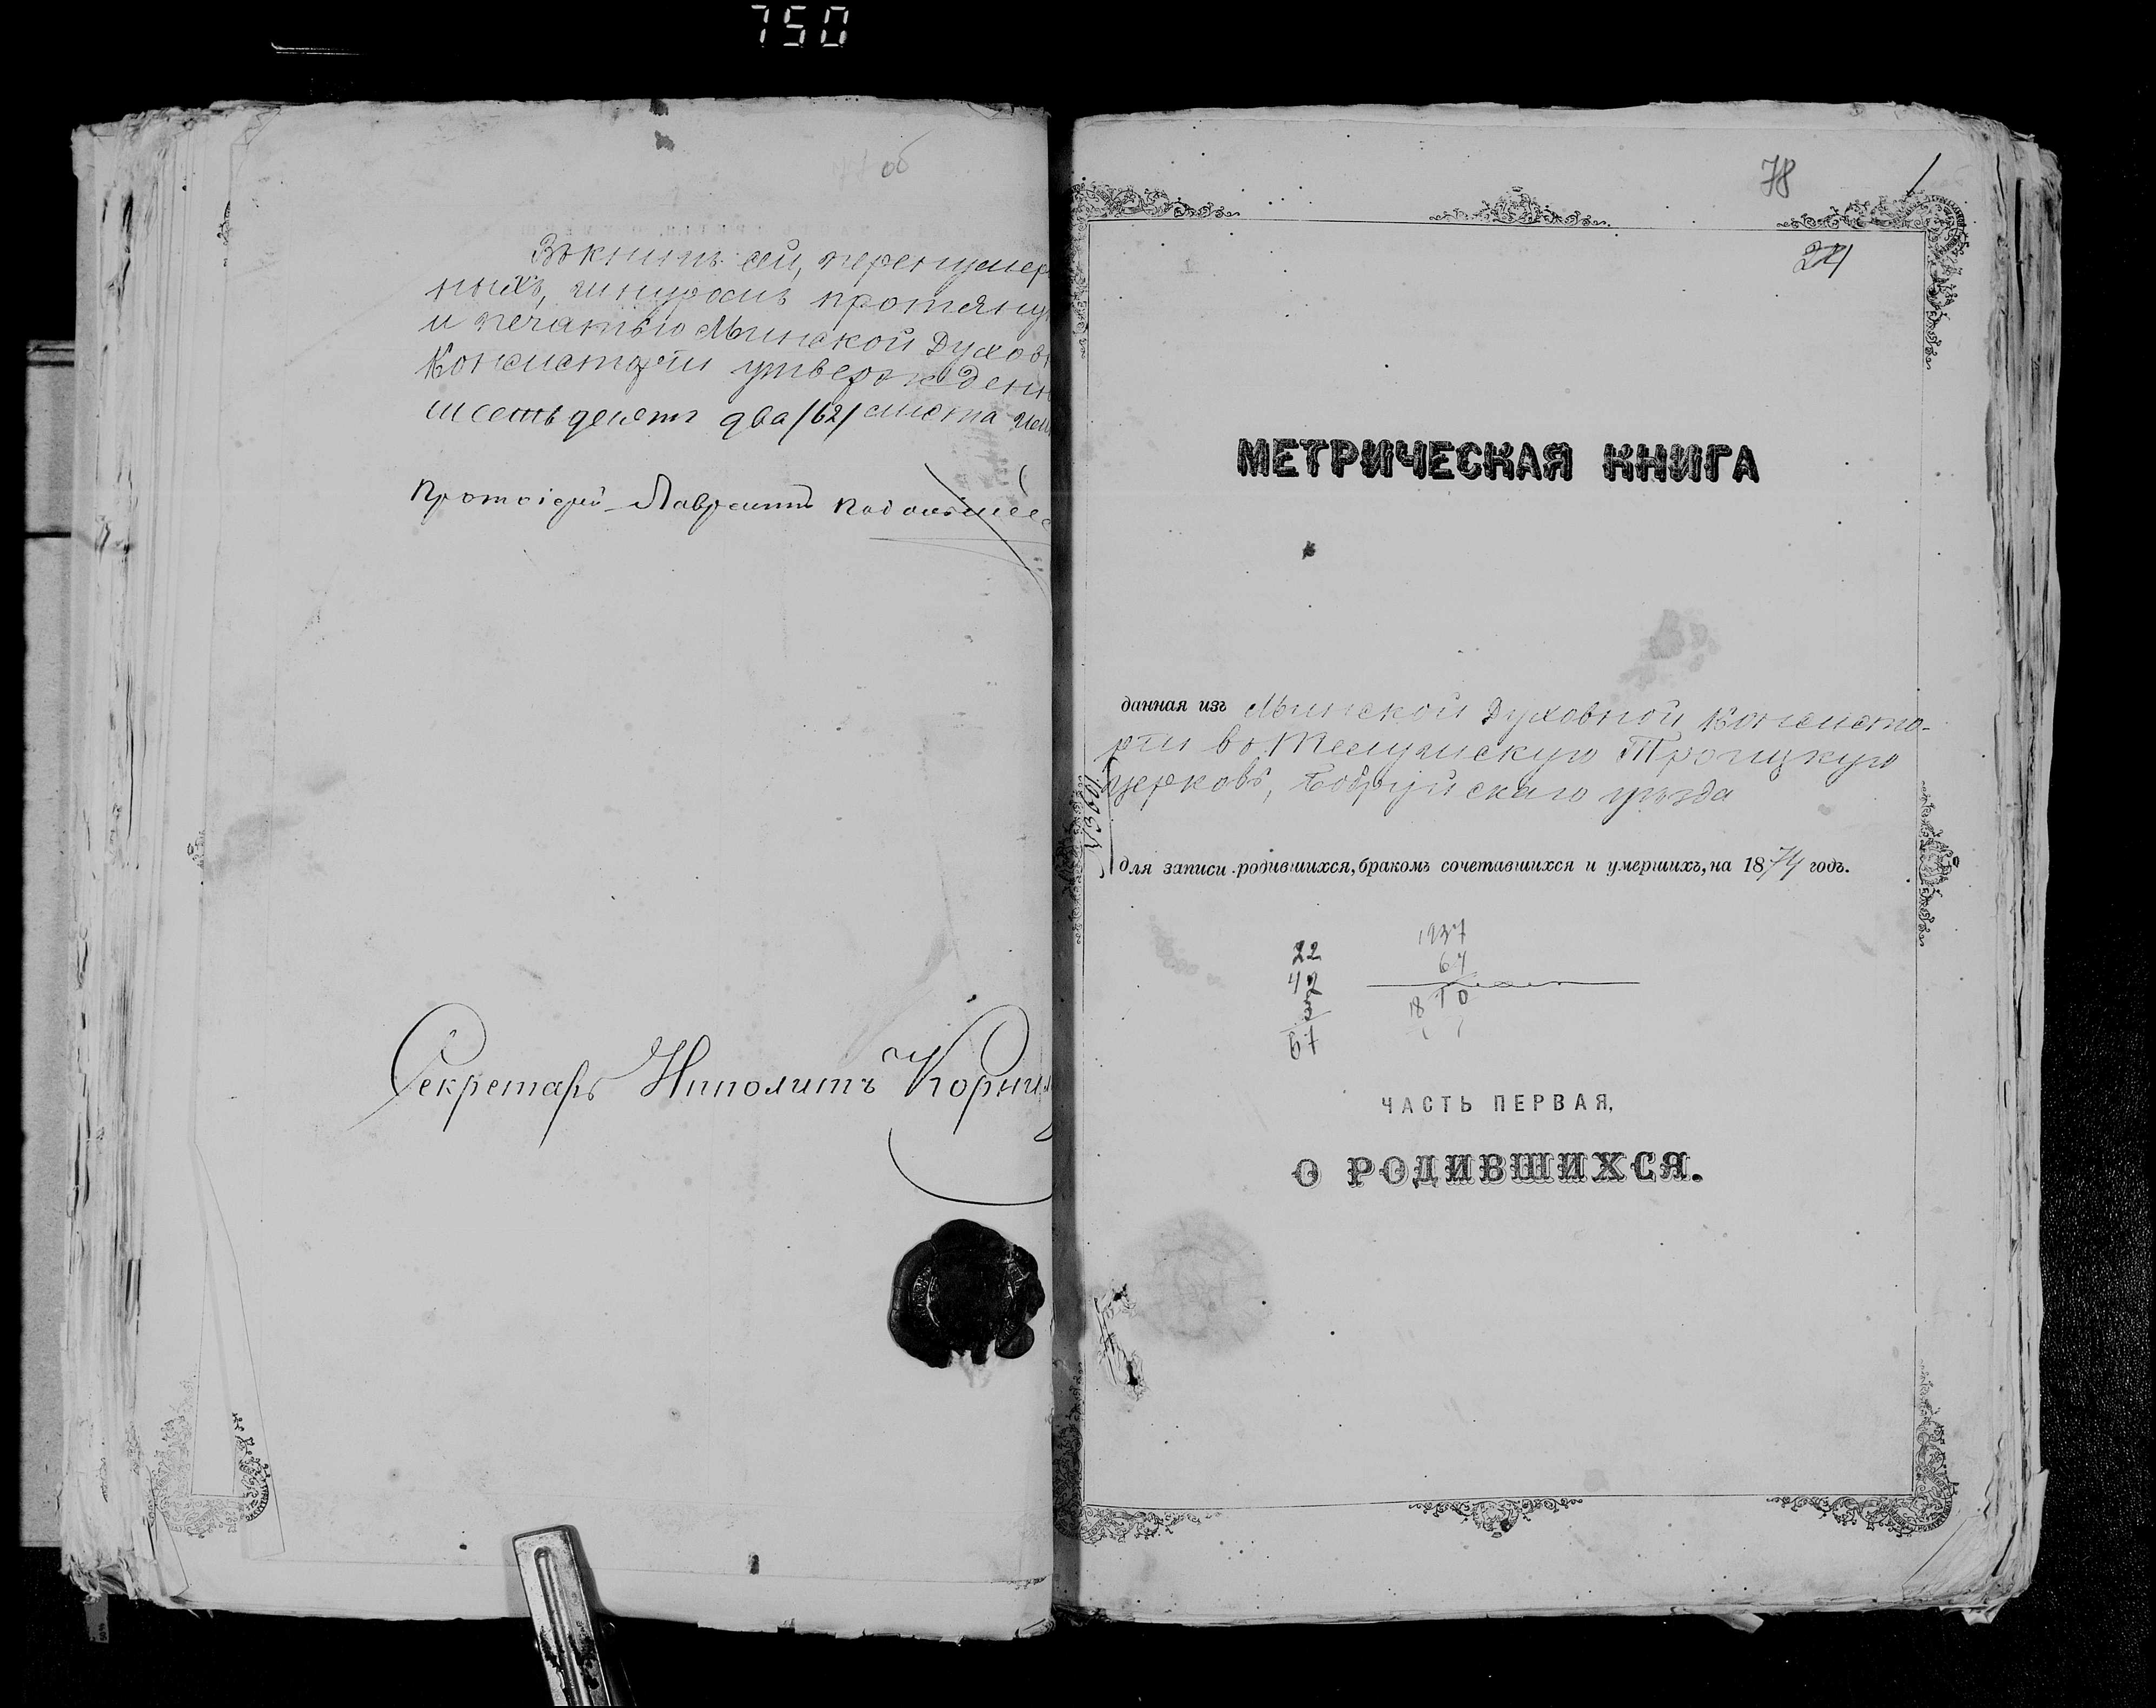 750
об
Въ книгѣ сей, перенумер
ныхъ, шнуромъ протяну
и печатью Минской Духов
Консисторіи утвержденн
шестьдесятъ два /62/ листа
Протоіерей Лаврентій
Секретарь Ипполитъ Корни
78
1
24
МЕТРИЧЕСКАЯ КНИГА
данная изъ Минской Духовной Консисто-
ріи въ Троицкую
церковь, Бобруйскаго уѣзда
№ 3601
для записи родившихся, бракомъ сочетавшихся и умершихъ, на 1874 годъ.
22
42
3
67
1937
67
18 7 0
ЧАСТЬ ПЕРВАЯ,
О РОДИВШИХСЯ.